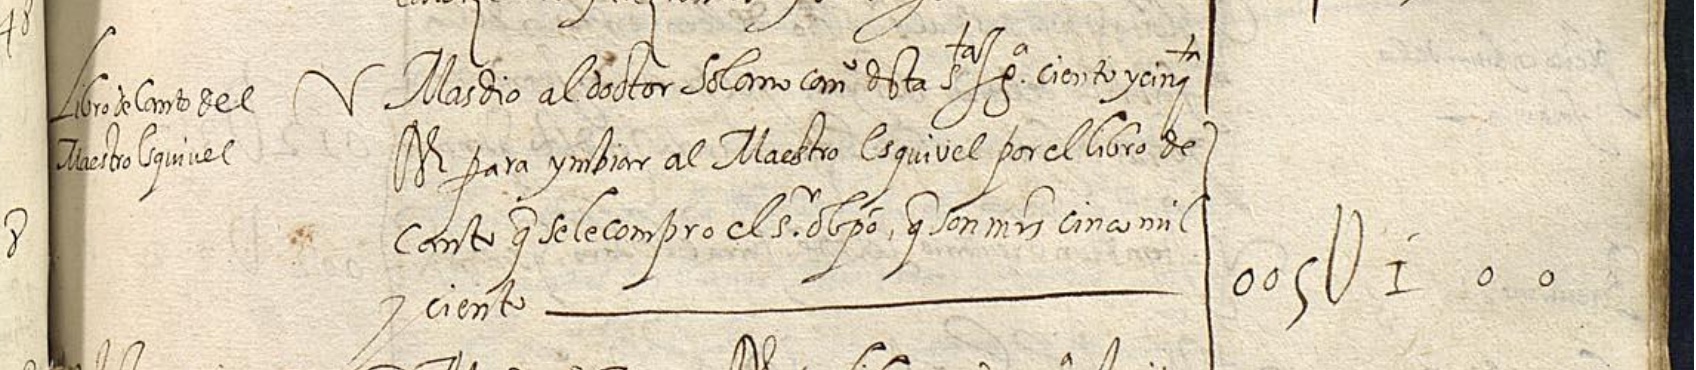 48
Libro de Canto del
Maestro Esquivel
V Mas dio al doctor Solano canº desta sta Igª. ciento y cinqta
Rs para ymbiar al Maestro Esquivel por el libro de
Canto q̃ se le compro el sr. obpõ, q̃ son mrs cinco mil
y ciento
005U I00
8